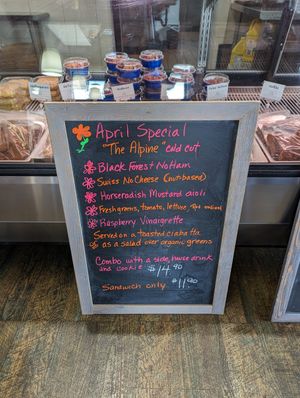 April Special
"The Alpine" cold cut
Black Forest NoHam
Swiss NoCheese (nut-based)
Horseradish Mustard aioli
Fresh greens, tomato, lettuce, red onion
Raspberry Vinaigrette
Served on a toasted ciabatta
or as a salad over organic greens
Combo with a side, house drink
and cookie $14.90
Sandwich only $11.90